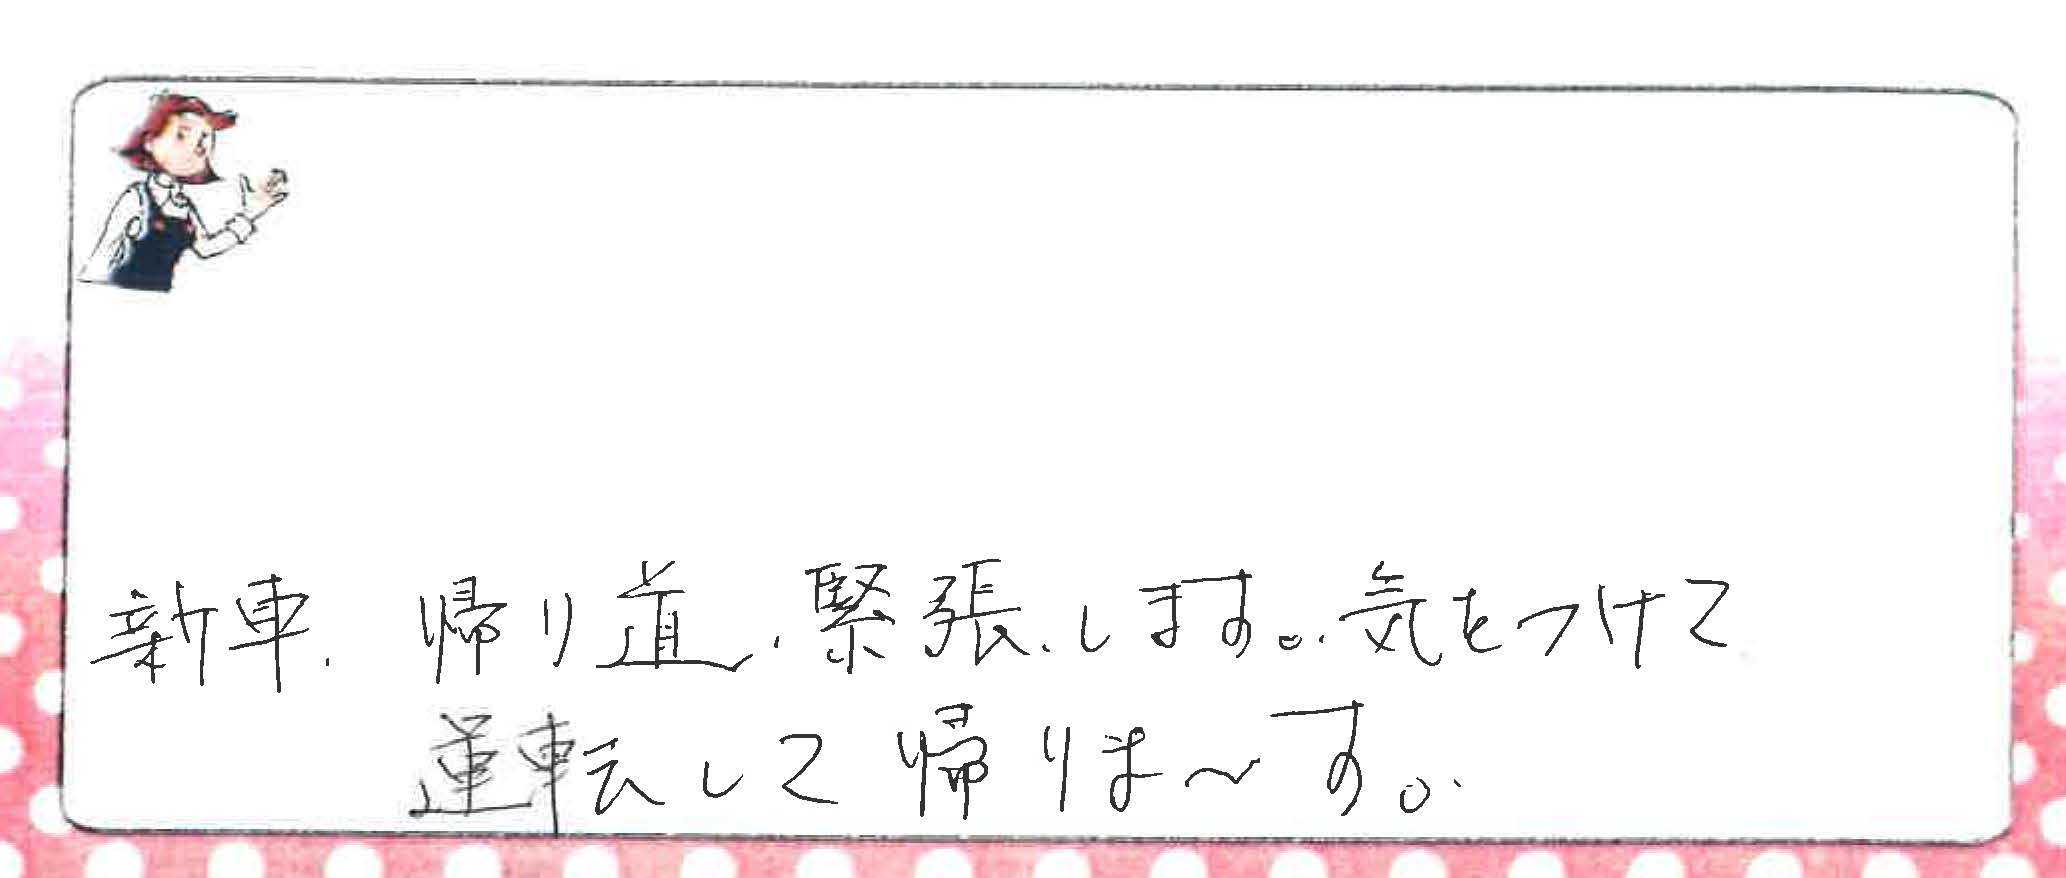 新車、帰り道、緊張、します。気をつけて
運転して帰りま〜す。